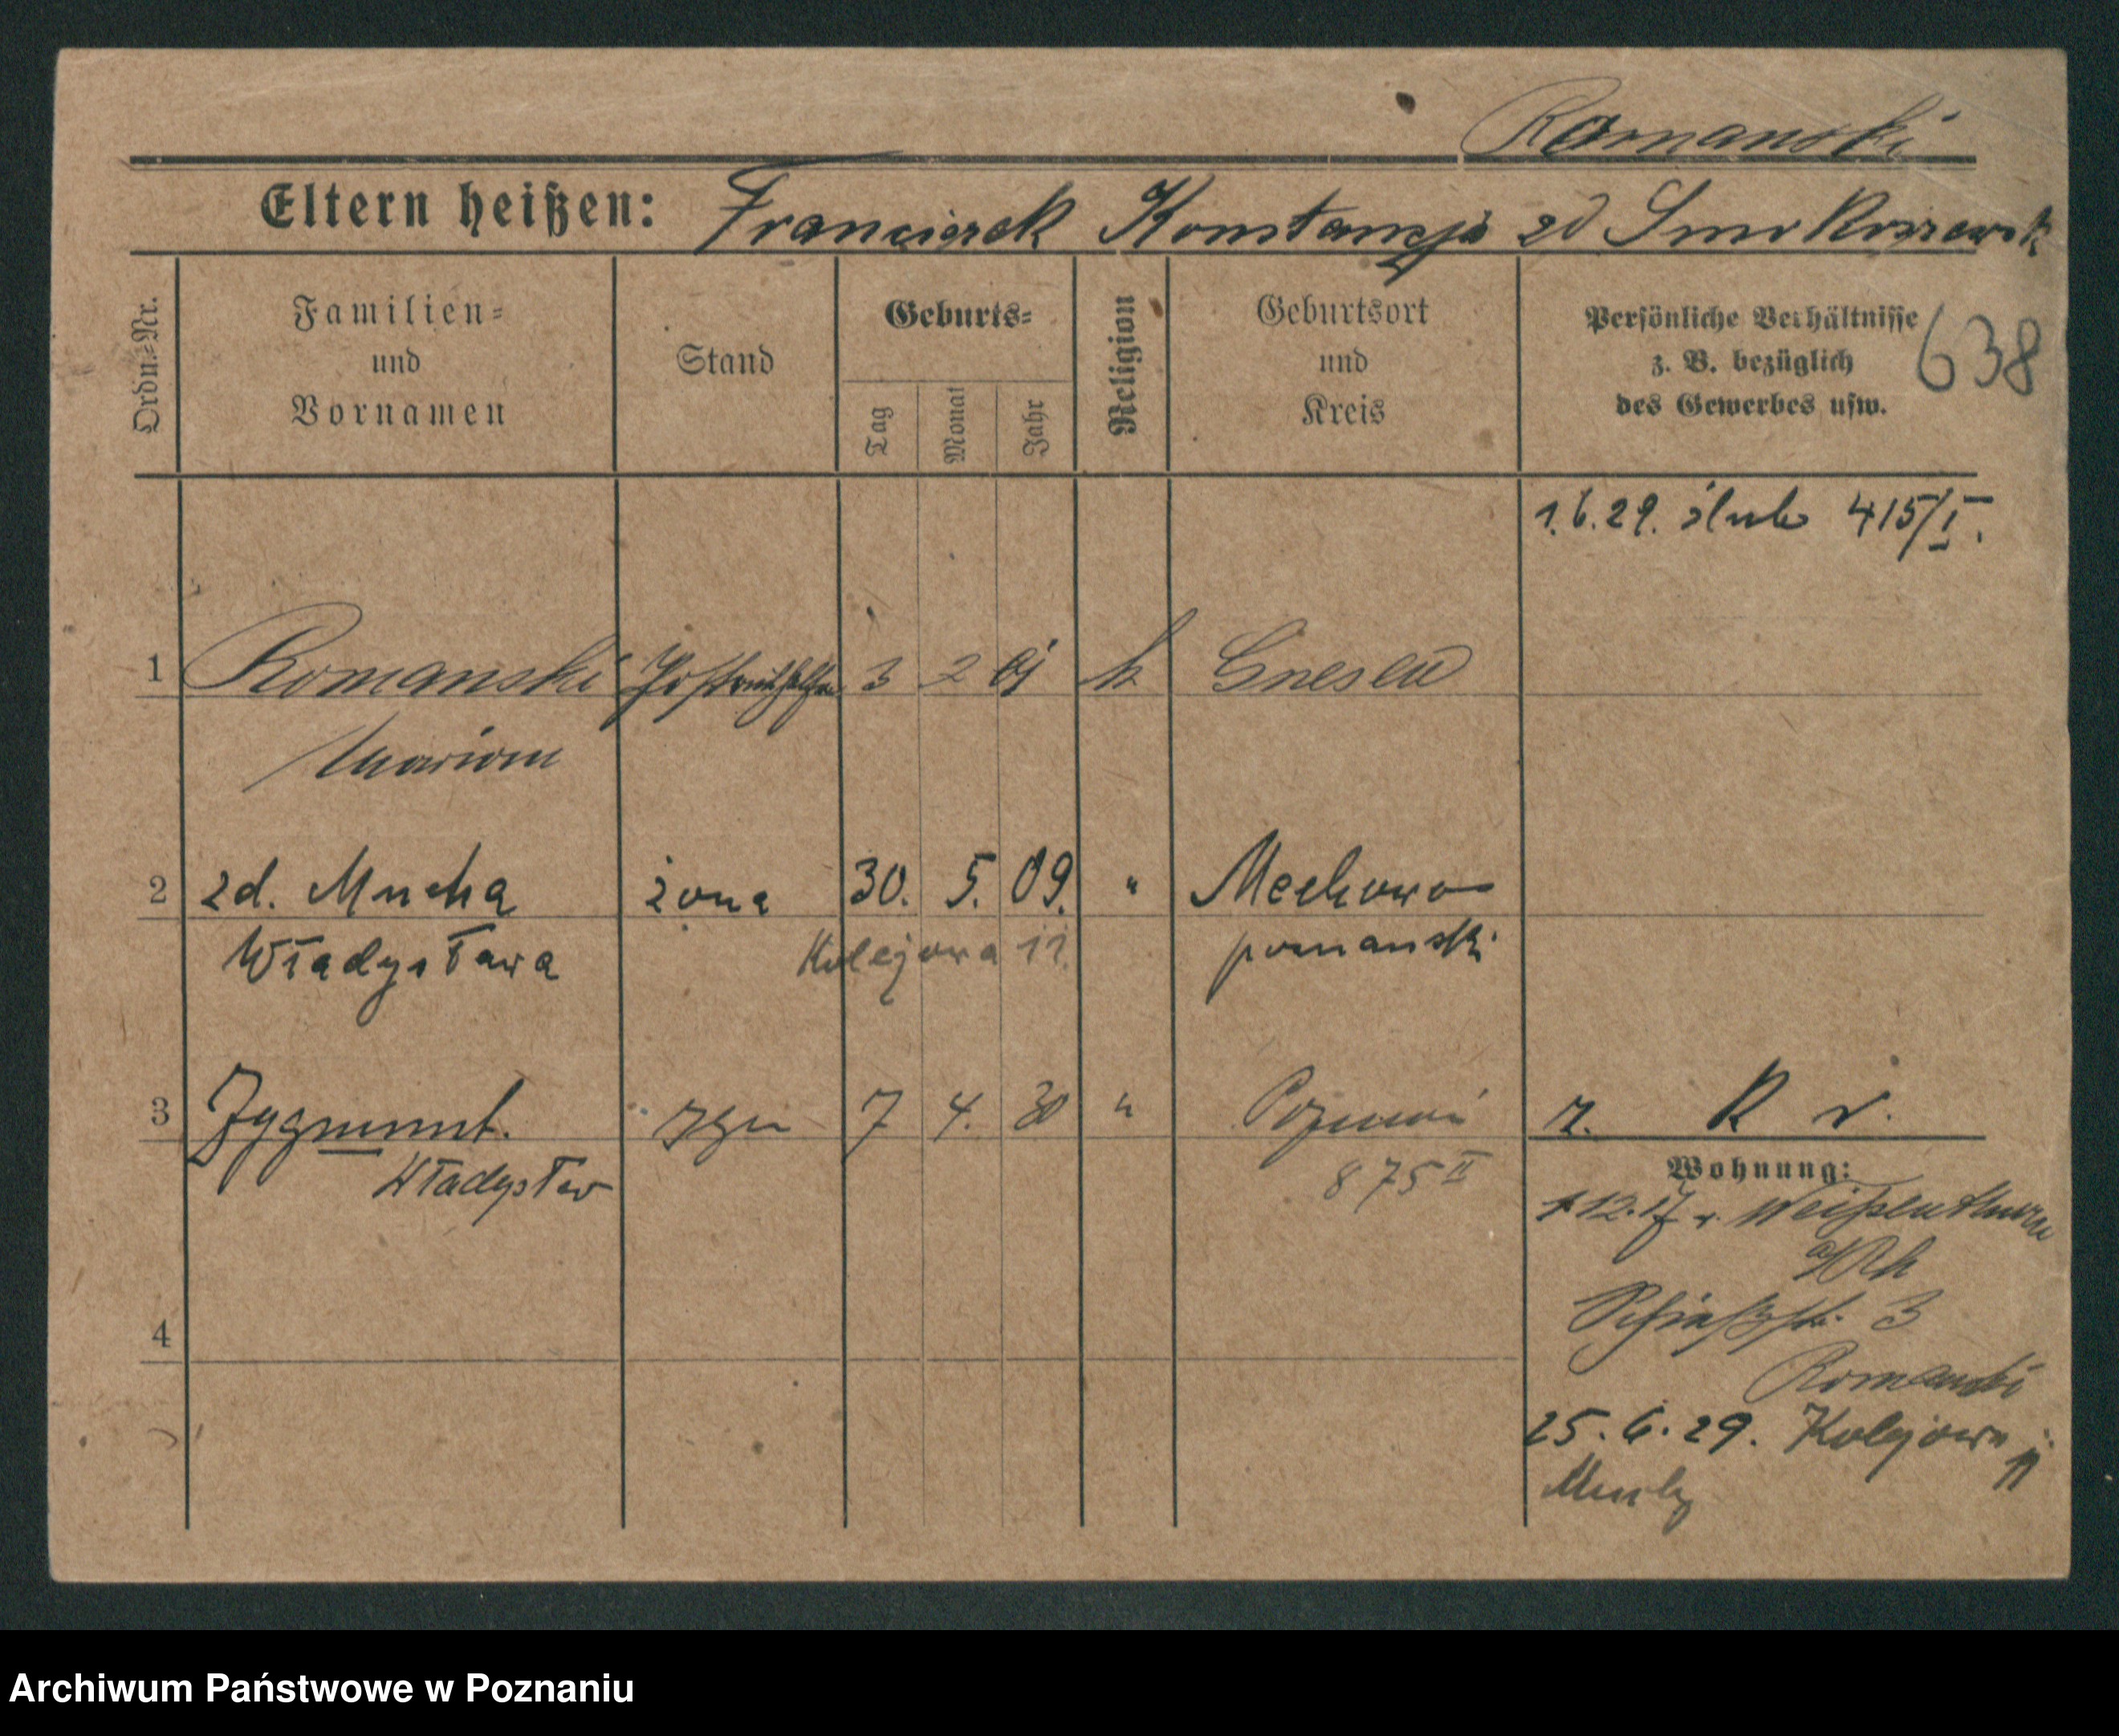 Romanski
Eltern heißen: Franciszek Konstancja zd Smokoszewsk
Ordn.-Nr.
Familien-
und
Vornamen
Stand
Geburts-
Tag
Monat
Jahr
Religion
Geburtsort
und
Kreis
Persönliche Verhältnisse
z. B. bezüglich
des Gewerbes usw.
638
1.6.29. ślub 415/I.
1 Romanski 3 2 k Gnesen
Marian
2 zd. Mucha żona 30. 5. 09. " Mechowo
Władysława Kolejowa 11. poznanski
3 Zygmunt. syn 7 4. 30 " Poznań
Władysław 875 II
r. K v.
Wohnung:
12.17 v. Weißenthurm
a/Rh
3
Romanski
25.6.29. Kolejowa 11
Muchy
4
Archiwum Państwowe w Poznaniu